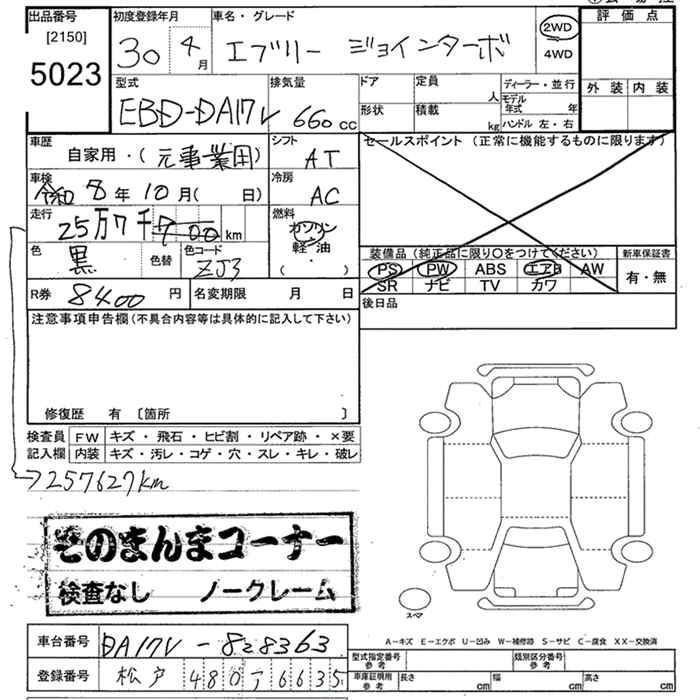 出品番号 初度登録年月 車名・グレード 評価点
[2150]
5023
30 4月 エブリー ジョインターボ 2WD
4WD
型式 排気量 ドア 定員 人 ディーラー・並行 外装 内装
EBD-DA17V 660cc 形状 積載 kg モデル年式 年
ハンドル 左・右
車歴 自家用・(元事業用) シフト AT セールスポイント (正常に機能するものに限ります)
車検 令和8年10月( 日) 冷房 AC
走行 25万7千700km 燃料 ガソリン
軽・油
( ・ )
色 黒 色替 色コード ZJ3
装備品 (純正品に限り〇をつけてください) 新車保証書
PS PW ABS エアB AW 有・無
SR ナビ TV カワ
R券 8400円 名変期限 月 日 後日品
注意事項申告欄(不具合内容等は具体的に記入して下さい)
修復歴 有 〔箇所 〕
検査員 FW キズ・飛石・ヒビ割・リペア跡・×要
記入欄 内装 キズ・汚レ・コゲ・穴・スレ・キレ・破レ
→257627km
そのまんまコーナー
検査なし ノークレーム
スペア
A-キズ E-エクボ U-凹み W-補修跡 S-サビ C-腐食 XX-交換済
車台番号 DA17V-828363
登録番号 松戸 480 7 6635
型式指定番号 参考 類別区分番号 参考
車庫証明用 参考 長さ cm 幅 cm 高さ cm